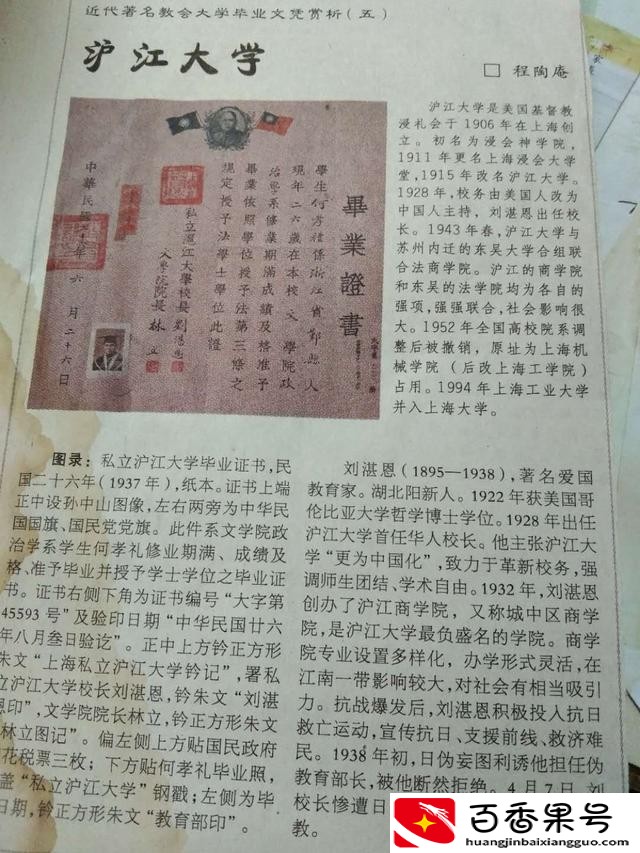 近代著名教会大学毕业文凭赏析(五)
沪江大学
□ 程陶庵
畢業證書
學生何孝禮係浙江省鄞縣人
現年二六歲在本校文學院政
治學系修業期滿成績及格准予
畢業依照學位授予法第三條之
規定授予法學士學位此證
私立滬江大學校長劉湛恩
文學院院長林立
中華民國二十六年六月二十六日
沪江大学是美国基督教
浸礼会于1906年在上海创
立。初名为浸会神学院，
1911年更名上海浸会大学
堂,1915年改名沪江大学。
1928年,校务由美国人改为
中国人主持，刘湛恩出任校
长。1943年春,沪江大学与
苏州内迁的东吴大学合组联
合法商学院。沪江的商学院
和东吴的法学院均为各自的
强项,强强联合,社会影响很
大。1952年全国高校院系调
整后被撤销，原址为上海机
械学院（后改上海工学院）
占用。1994年上海工业大学
并入上海大学。
图录：私立沪江大学毕业证书,民
国二十六年(1937年),纸本。证书上端
正中设孙中山图像,左右两旁为中华民
国国旗、国民党党旗。此件系文学院政
治学系学生何孝礼修业期满、成绩及
格、准予毕业并授予学士学位之毕业证
书。证书右侧下角为证书编号“大字第
45593号”及验印日期“中华民国廿六
年八月叁日验讫”。正中上方钤正方形
朱文“上海私立沪江大学钤记”,署私
立沪江大学校长刘湛恩,钤朱文“刘湛
恩印”,文学院院长林立,钤正方形朱文
“林立图记”。偏左侧上方贴国民政府
花税票三枚；下方贴何孝礼毕业照,
盖“私立沪江大学”钢戳；左侧为毕
日期,钤正方形朱文“教育部印”。
刘湛恩(1895—1938),著名爱国
教育家。湖北阳新人。1922年获美国哥
伦比亚大学哲学博士学位。1928年出任
沪江大学首任华人校长。他主张沪江大
学“更为中国化”,致力于革新校务,强
调师生团结、学术自由。1932年,刘湛恩
创办了沪江商学院，又称城中区商学
院,是沪江大学最负盛名的学院。商学
院专业设置多样化，办学形式灵活,在
江南一带影响较大,对社会有相当吸引
力。抗战爆发后,刘湛恩积极投入抗日
救亡运动,宣传抗日、支援前线、救济难
民。1938年初,日伪妄图利诱他担任伪
教育部长,被他断然拒绝。4月7日,刘
校长惨遭日
教。
百香果号
huangjinbaixiangguo.com